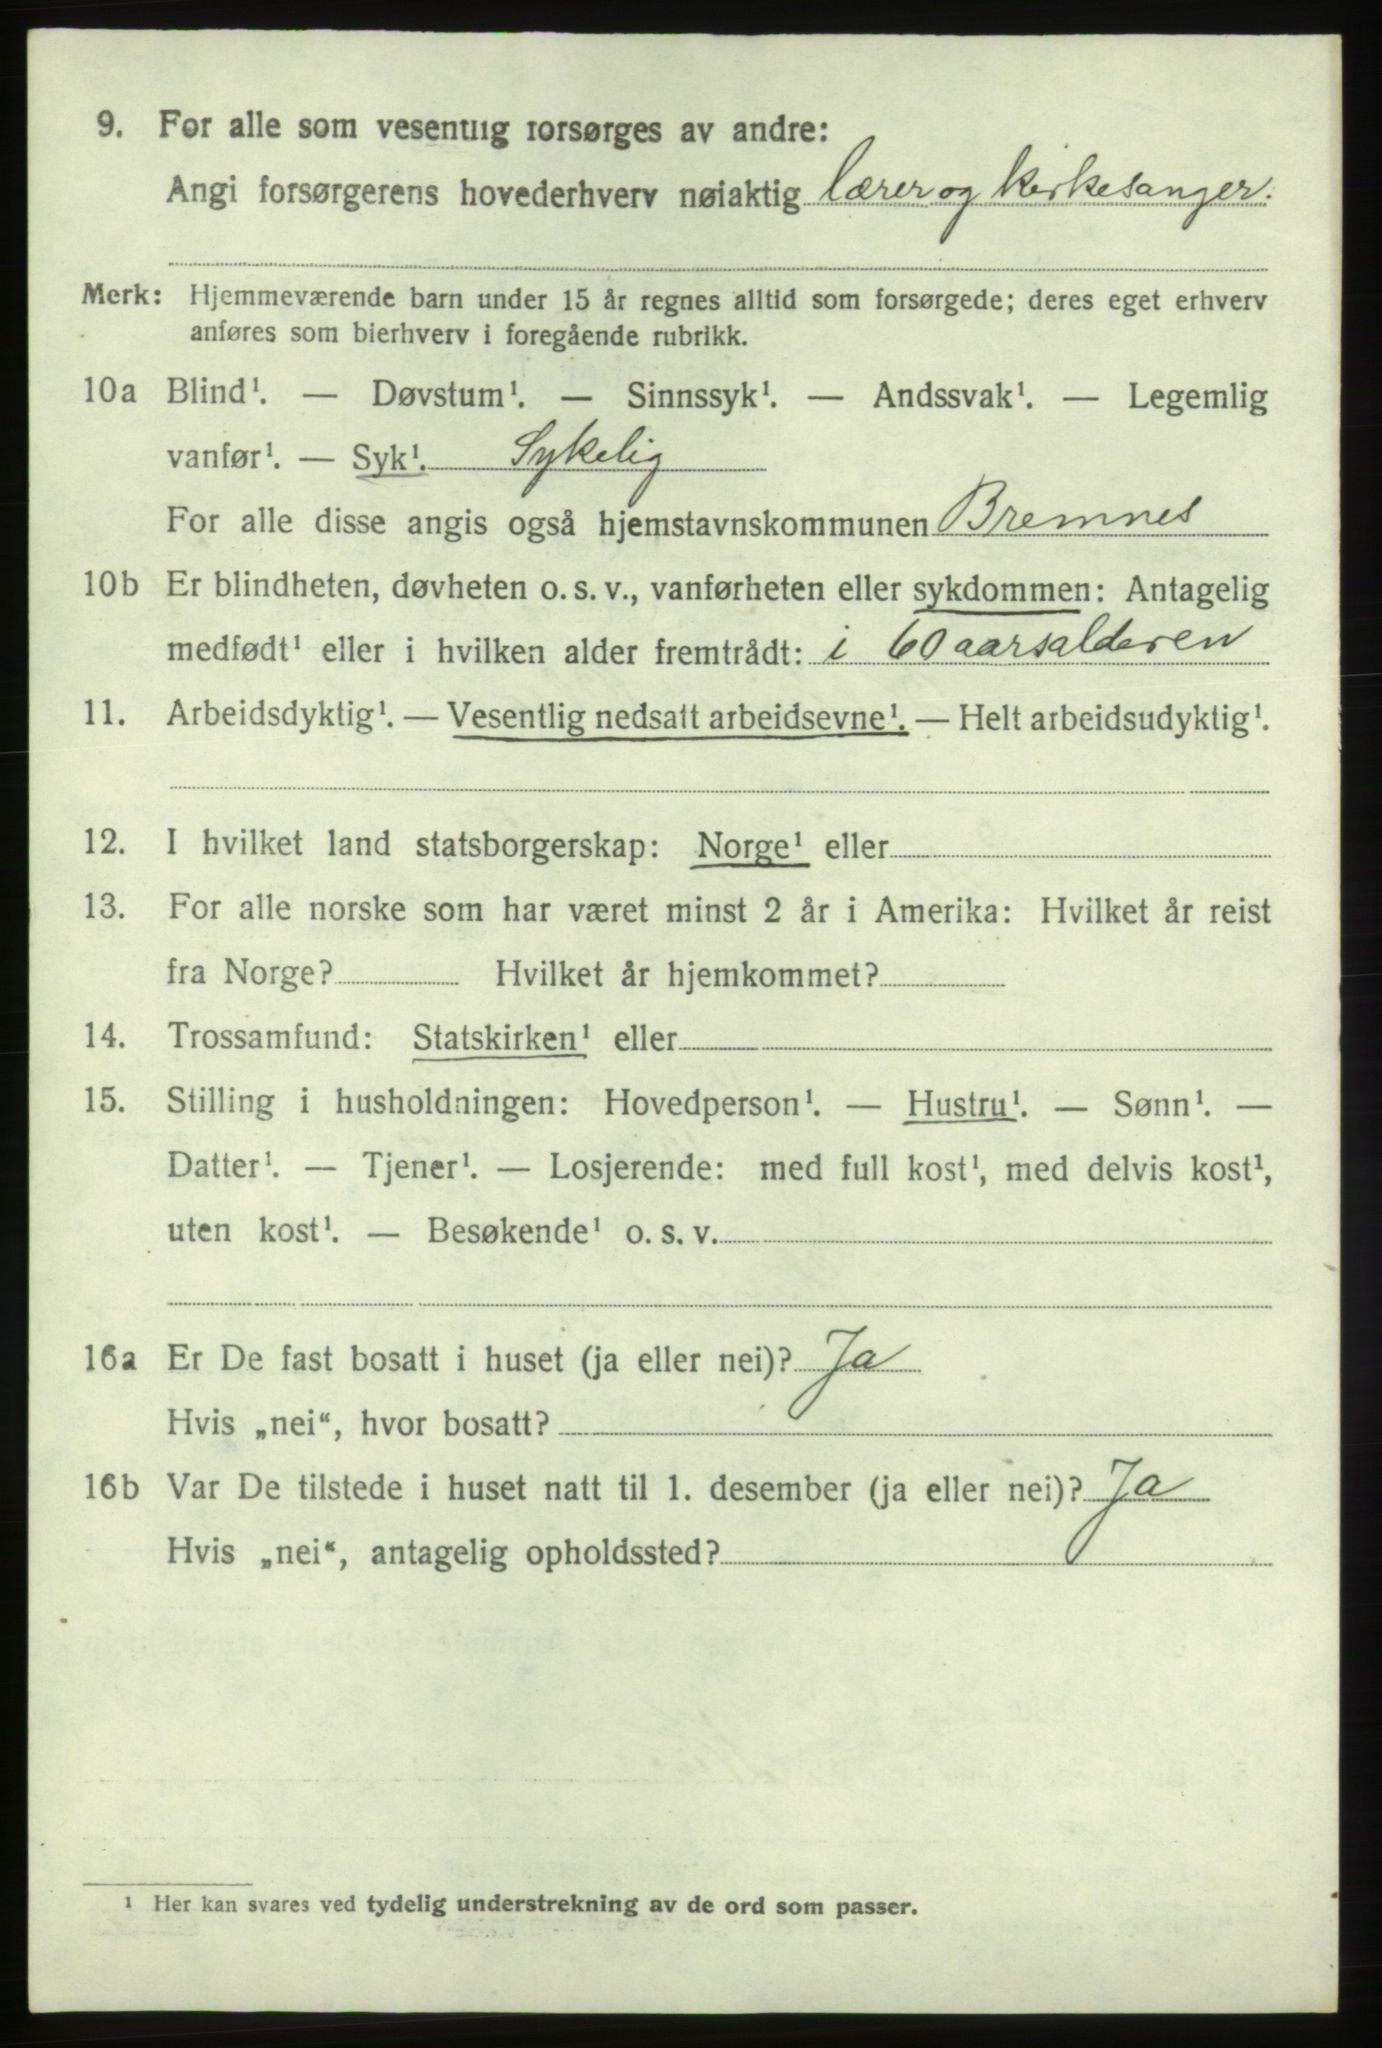 9. For alle som vesentlig forsørges av andre:
Angi forsørgerens hovederhverv nøiaktig lærer og kirkesanger.
Merk: Hjemmeværende barn under 15 år regnes alltid som forsørgede; deres eget erhverv
anføres som bierhverv i foregående rubrikk.
10a Blind¹. — Døvstum¹. — Sinnssyk¹. — Andssvak¹. — Legemlig
vanfør¹. — Syk¹. Sykelig
For alle disse angis også hjemstavnskommunen Bremnes
10b Er blindheten, døvheten o. s. v., vanførheten eller sykdommen: Antagelig
medfødt¹ eller i hvilken alder fremtrådt: i 60 aarsalderen
11. Arbeidsdyktig¹. — Vesentlig nedsatt arbeidsevne¹. — Helt arbeidsudyktig¹.
12. I hvilket land statsborgerskap: Norge¹ eller
13. For alle norske som har været minst 2 år i Amerika: Hvilket år reist
fra Norge? Hvilket år hjemkommet?
14. Trossamfund: Statskirken¹ eller
15. Stilling i husholdningen: Hovedperson¹. — Hustru¹. — Sønn¹. —
Datter¹. — Tjener¹. — Losjerende: med full kost¹, med delvis kost¹,
uten kost¹. — Besøkende¹ o. s. v.
16a Er De fast bosatt i huset (ja eller nei)? Ja
Hvis „nei“, hvor bosatt?
16b Var De tilstede i huset natt til 1. desember (ja eller nei)? Ja
Hvis „nei“, antagelig opholdssted?
¹ Her kan svares ved tydelig understrekning av de ord som passer.